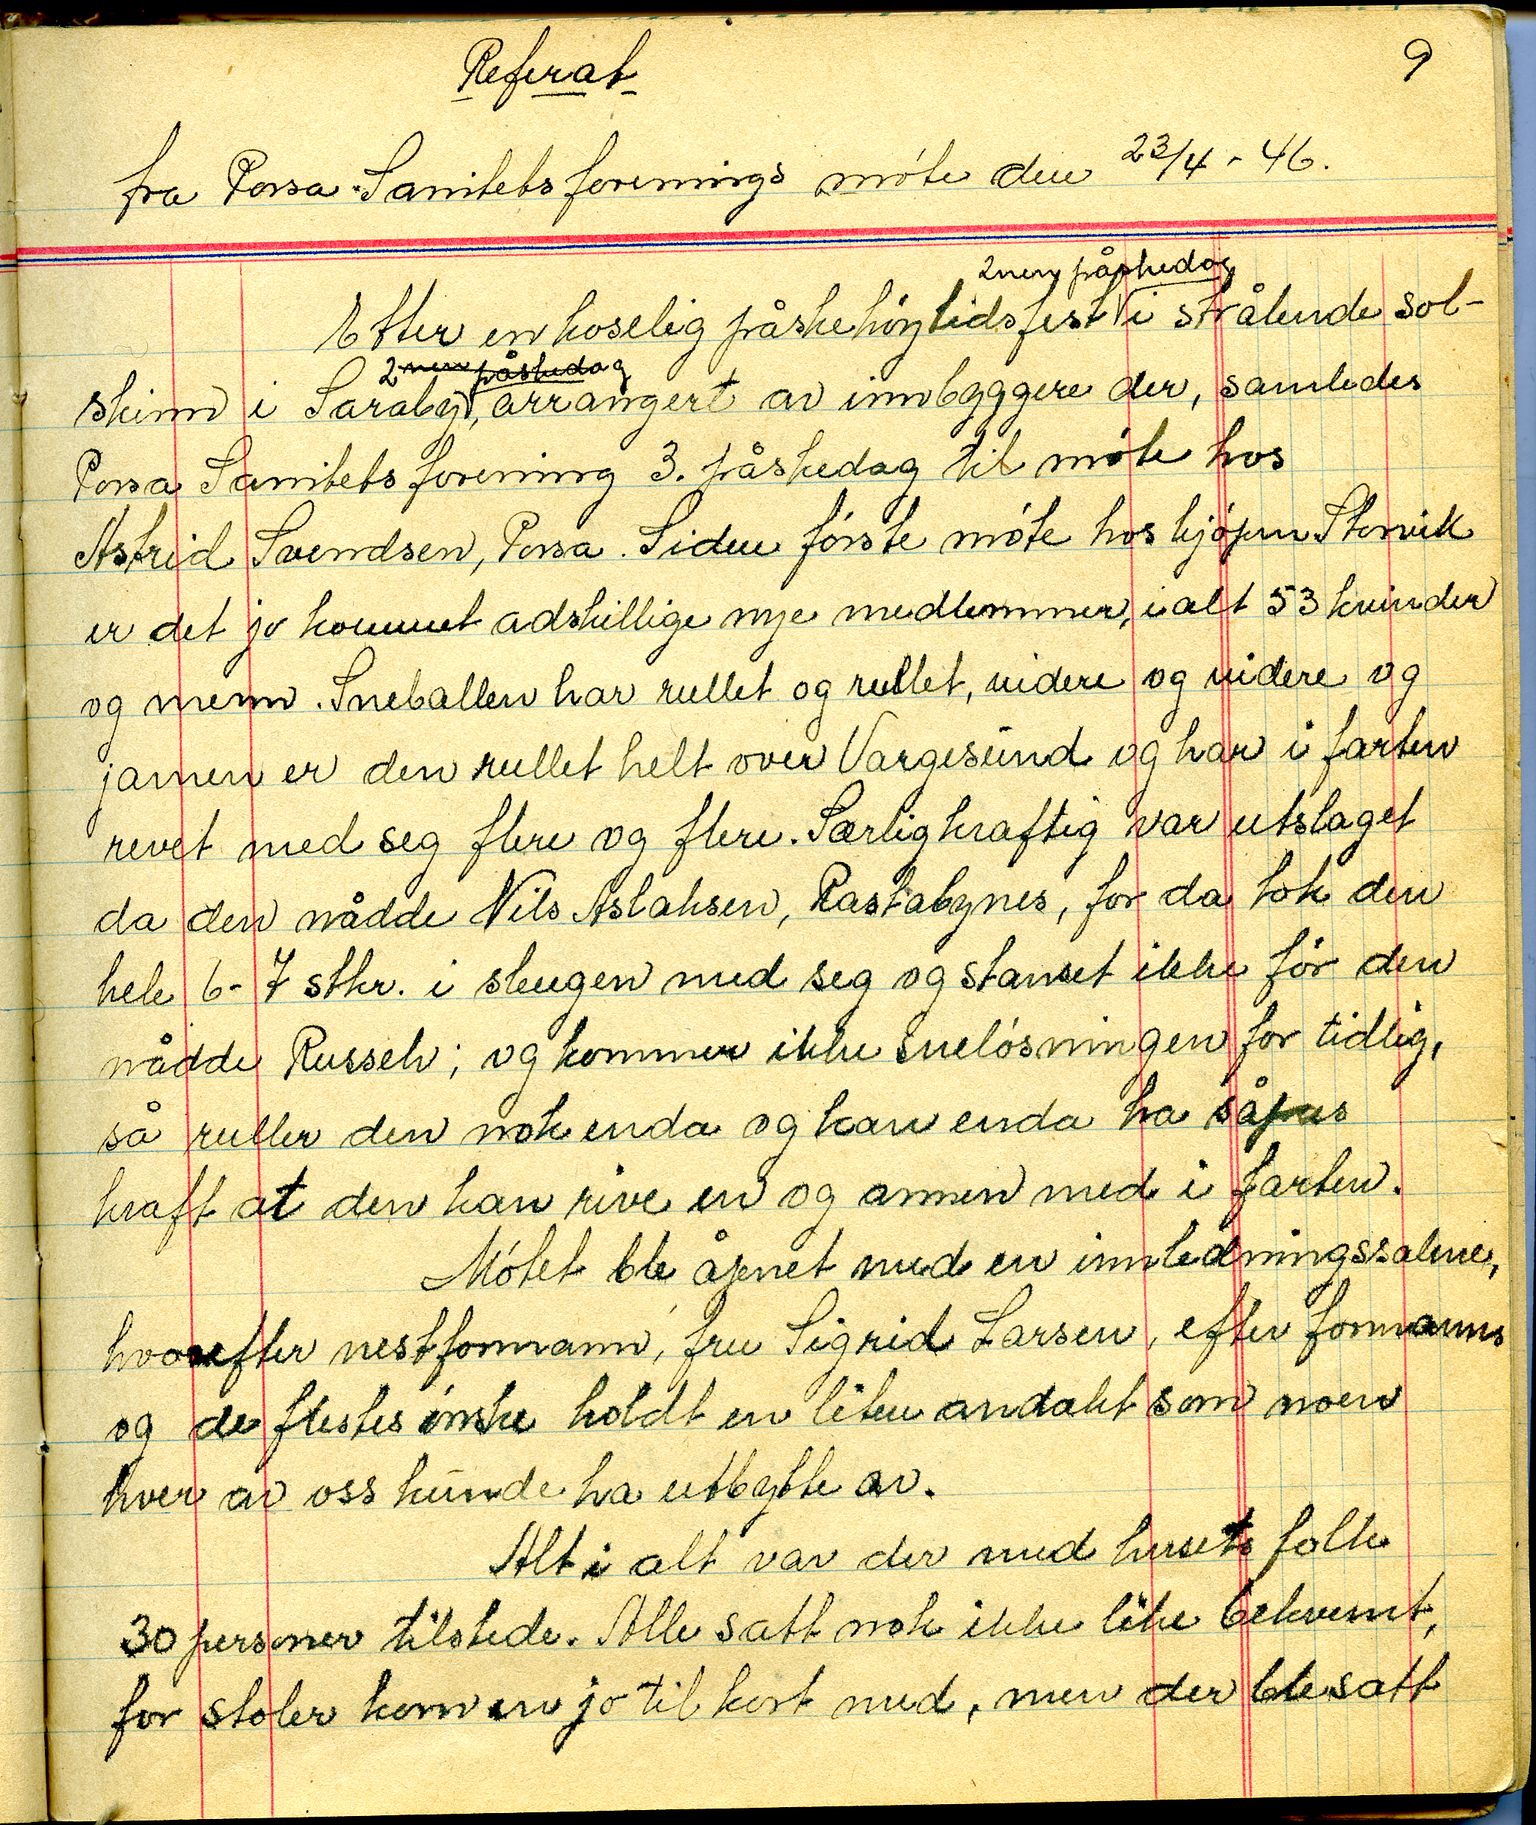 9
Referat
fra Porsa Sanitetsforenings møte den 23/4 - 46.
2nen påskedag
Etter en koselig påskehøytidsfest i strålende sol-
2nen påskedag
skinn i Saraby, arrangert av innbyggere der, samledes
Porsa Sanitetsforening 3. påskedag til møte hos
Astrid Svendsen, Porsa. Siden første møte hos kjøpm. Storvik
er det jo kommet adskillige nye medlemmer, i alt 53 kvinder
og menn. Sneballen har rullet og rullet, videre og videre og
jamen er den rullet helt over Vargesund og har i farten
revet med seg flere og flere. Særlig kraftig var utslaget
da den nådde Nils Aslaksen, Rastabynes, for da tok den
hele 6-7 stkr. i slengen med seg og stanset ikke før den
nådde Russelv; og kommer ikke sneløsningen for tidlig,
så ruller den nok enda og kan enda ha såpas
kraft at den kan rive en og annen med i farten.
Møtet ble åpnet med en innledningssalme,
hvorefter nestformann, fru Sigrid Larsen, efter formanns
og de flestes ønske holdt en liten andakt som noen
hver av oss kunde ha utbytte av.
Alt i alt var der med husets folk
30 personer tilstede. Alle satt nok ikke like bekvemt,
for stoler kom en jo til kort med, men der ble satt